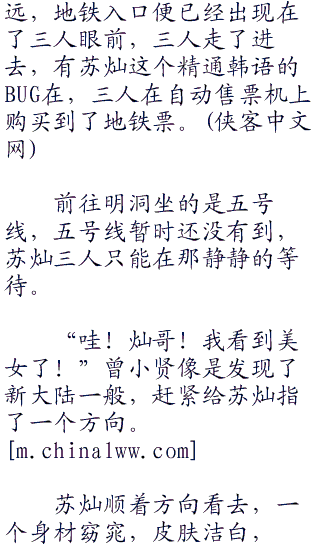 远，地铁入口便已经出现在
了三人眼前，三人走了进
去，有苏灿这个精通韩语的
BUG在，三人在自动售票机上
购买到了地铁票。(侠客中文
网)
前往明洞坐的是五号
线，五号线暂时还没有到，
苏灿三人只能在那静静的等
待。
“哇！灿哥！我看到美
女了！”曾小贤像是发现了
新大陆一般，赶紧给苏灿指
了一个方向。
[m.china1ww.com]
苏灿顺着方向看去，一
个身材窈窕，皮肤洁白，